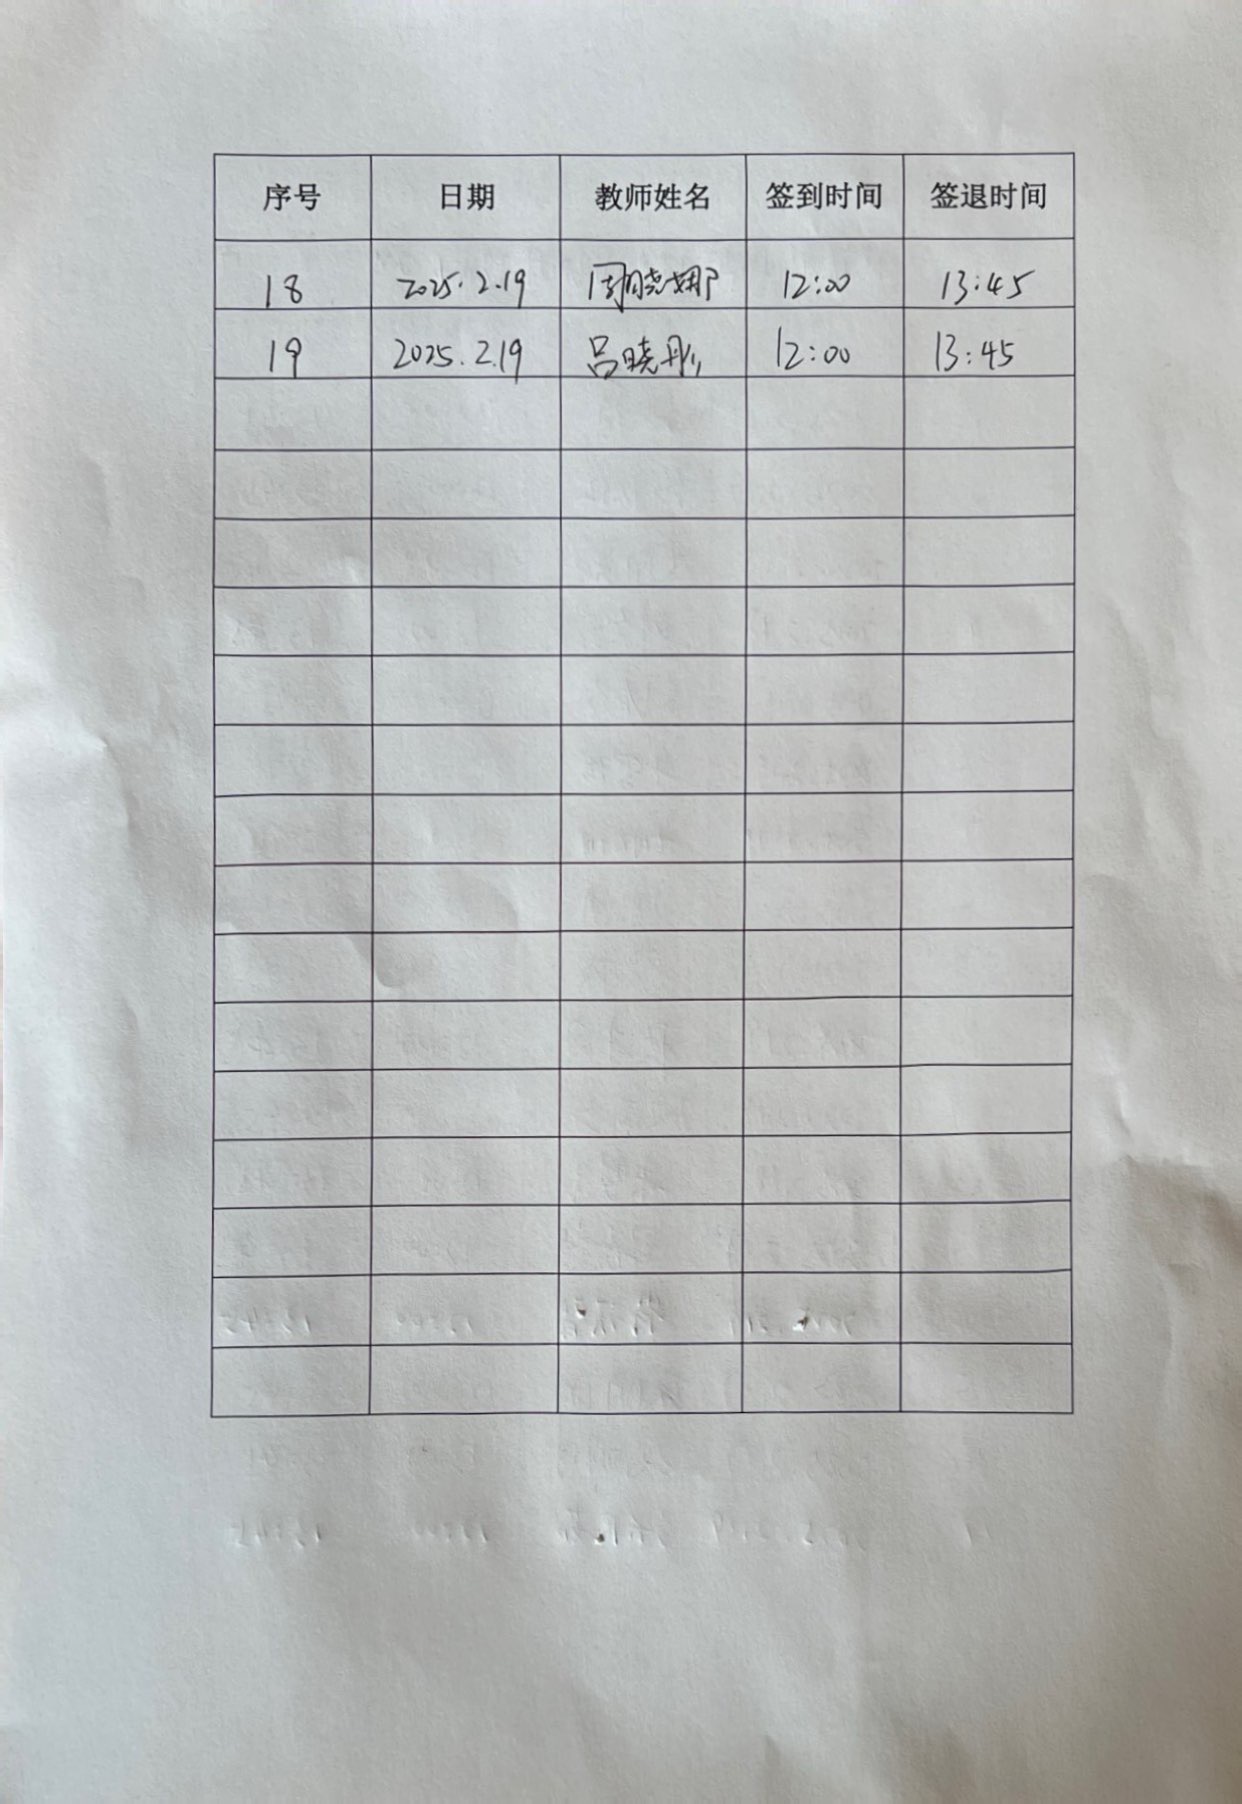 序号 日期 教师姓名 签到时间 签退时间
18 2025.2.19 周晓娜 12:00 13:45
19 2025.2.19 吕晓彤 12:00 13:45